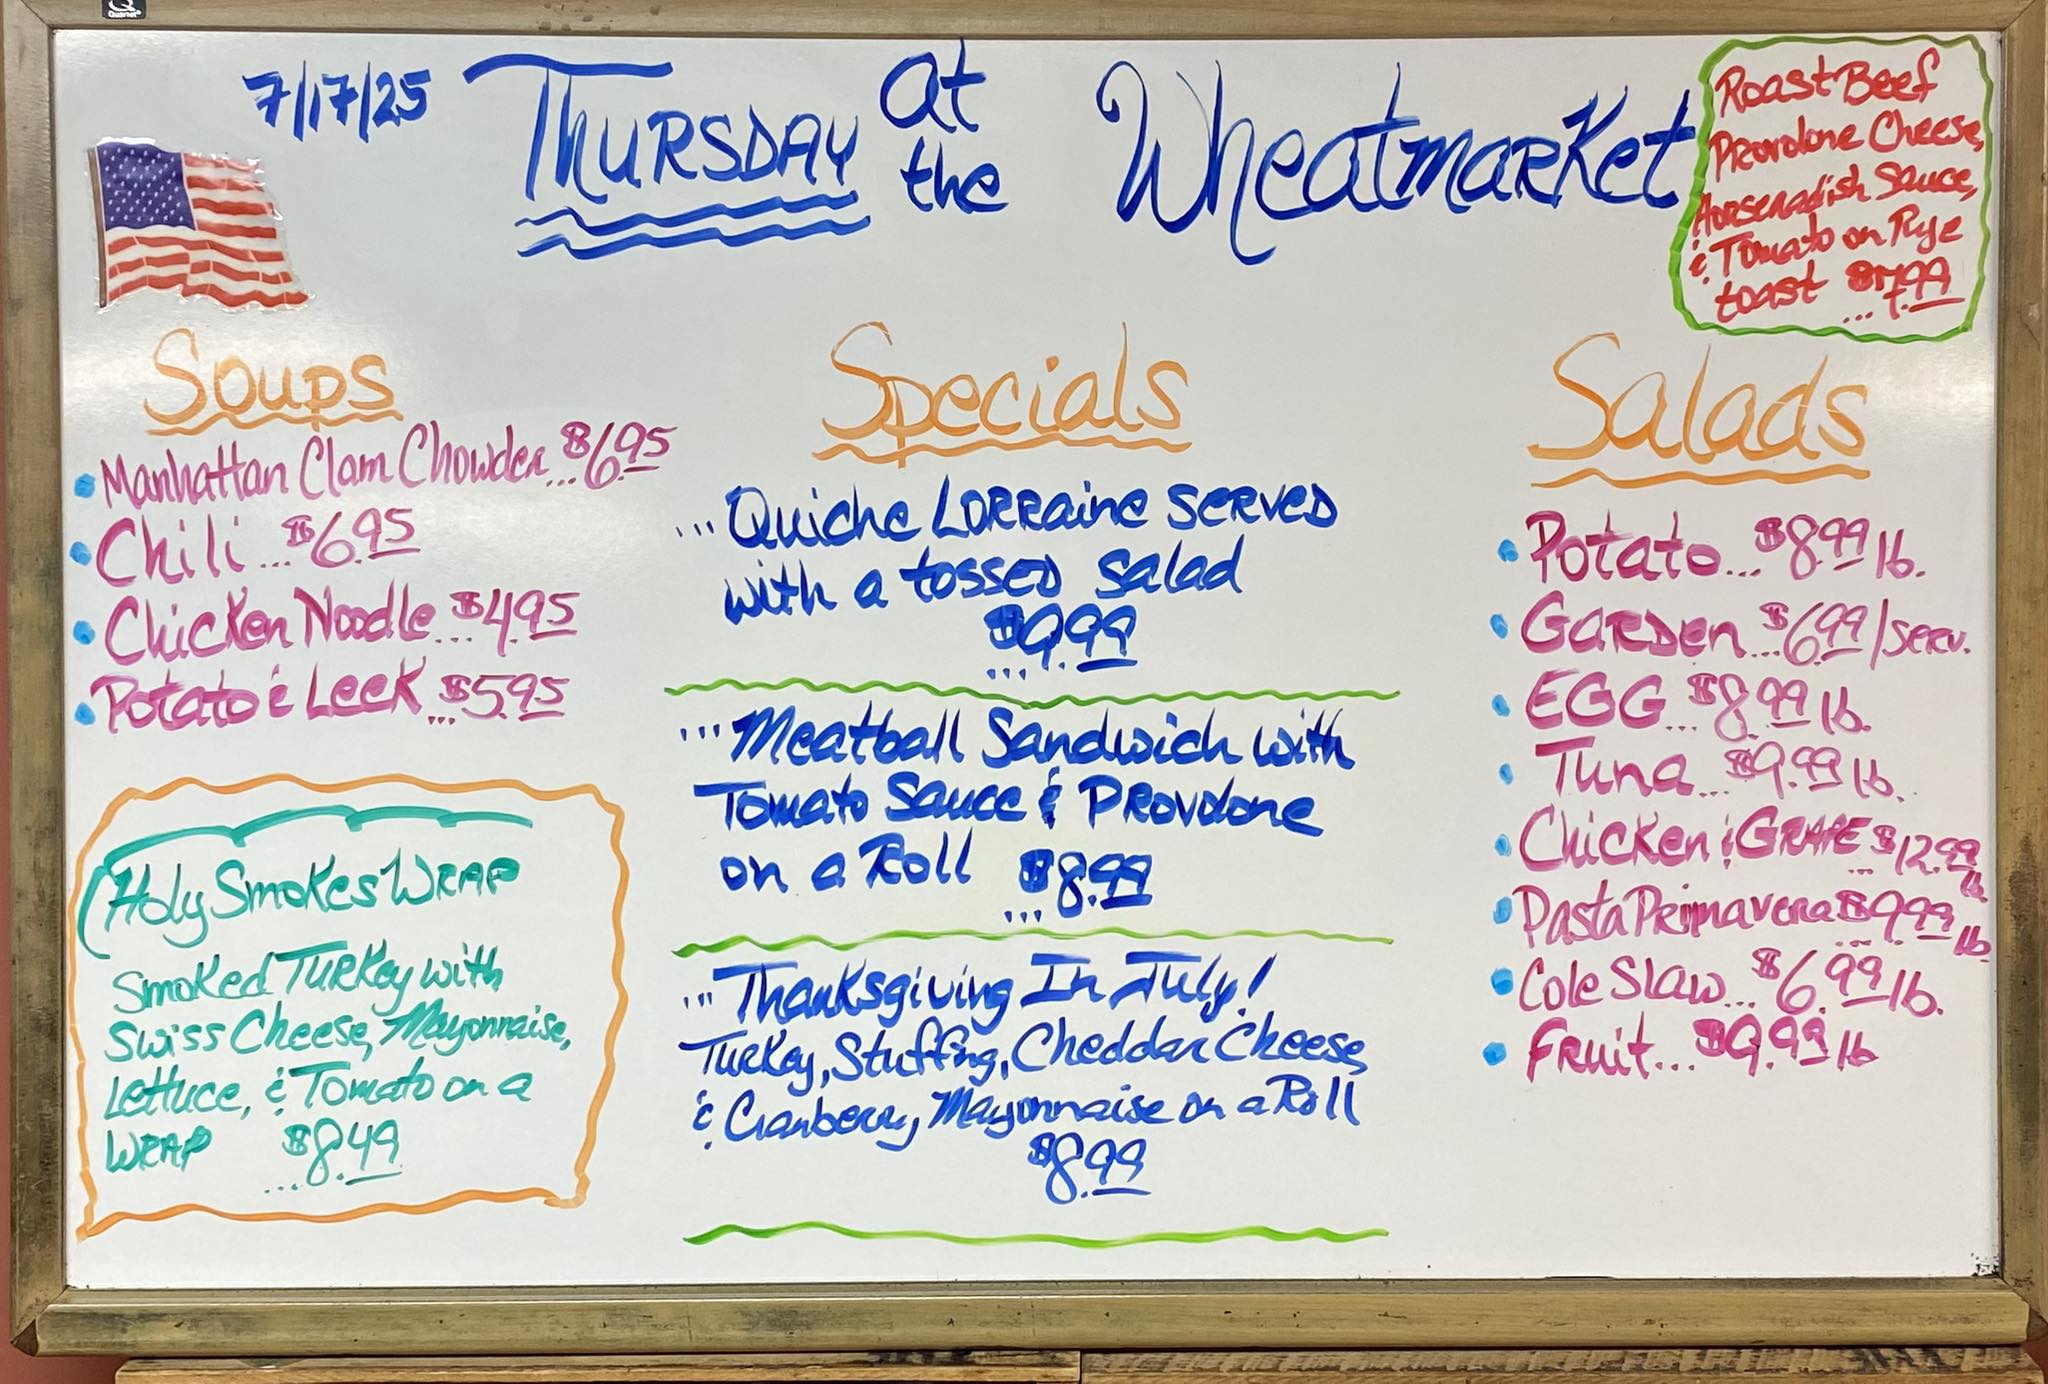 Quartet
7/17/25
THURSDAY at the Wheatmarket
Roast Beef
Provolone Cheese,
Horseradish Sauce,
& Tomato on Rye
toast ...$7.99
Soups
• Manhattan Clam Chowder...$6.95
• Chili...$6.95
• Chicken Noodle...$4.95
• Potato & Leek...$5.95
Holy Smokes WRAP
Smoked Turkey with
Swiss Cheese, Mayonnaise,
Lettuce, & Tomato on a
WRAP ...$8.49
Specials
...Quiche Lorraine served
with a tossed salad
...$9.99
...Meatball Sandwich with
Tomato Sauce & Provolone
on a Roll ...$8.99
...Thanksgiving In July!
Turkey, Stuffing, Cheddar Cheese,
& Cranberry, Mayonnaise on a Roll
$8.99
Salads
• Potato...$8.99 lb.
• Garden...$6.99/serv.
• EGG...$8.99 lb.
• Tuna...$9.99 lb.
• Chicken & GRAPE...$12.99 lb.
• Pasta Primavera...$9.99 lb.
• Cole Slaw...$6.99 lb.
• Fruit...$9.99 lb